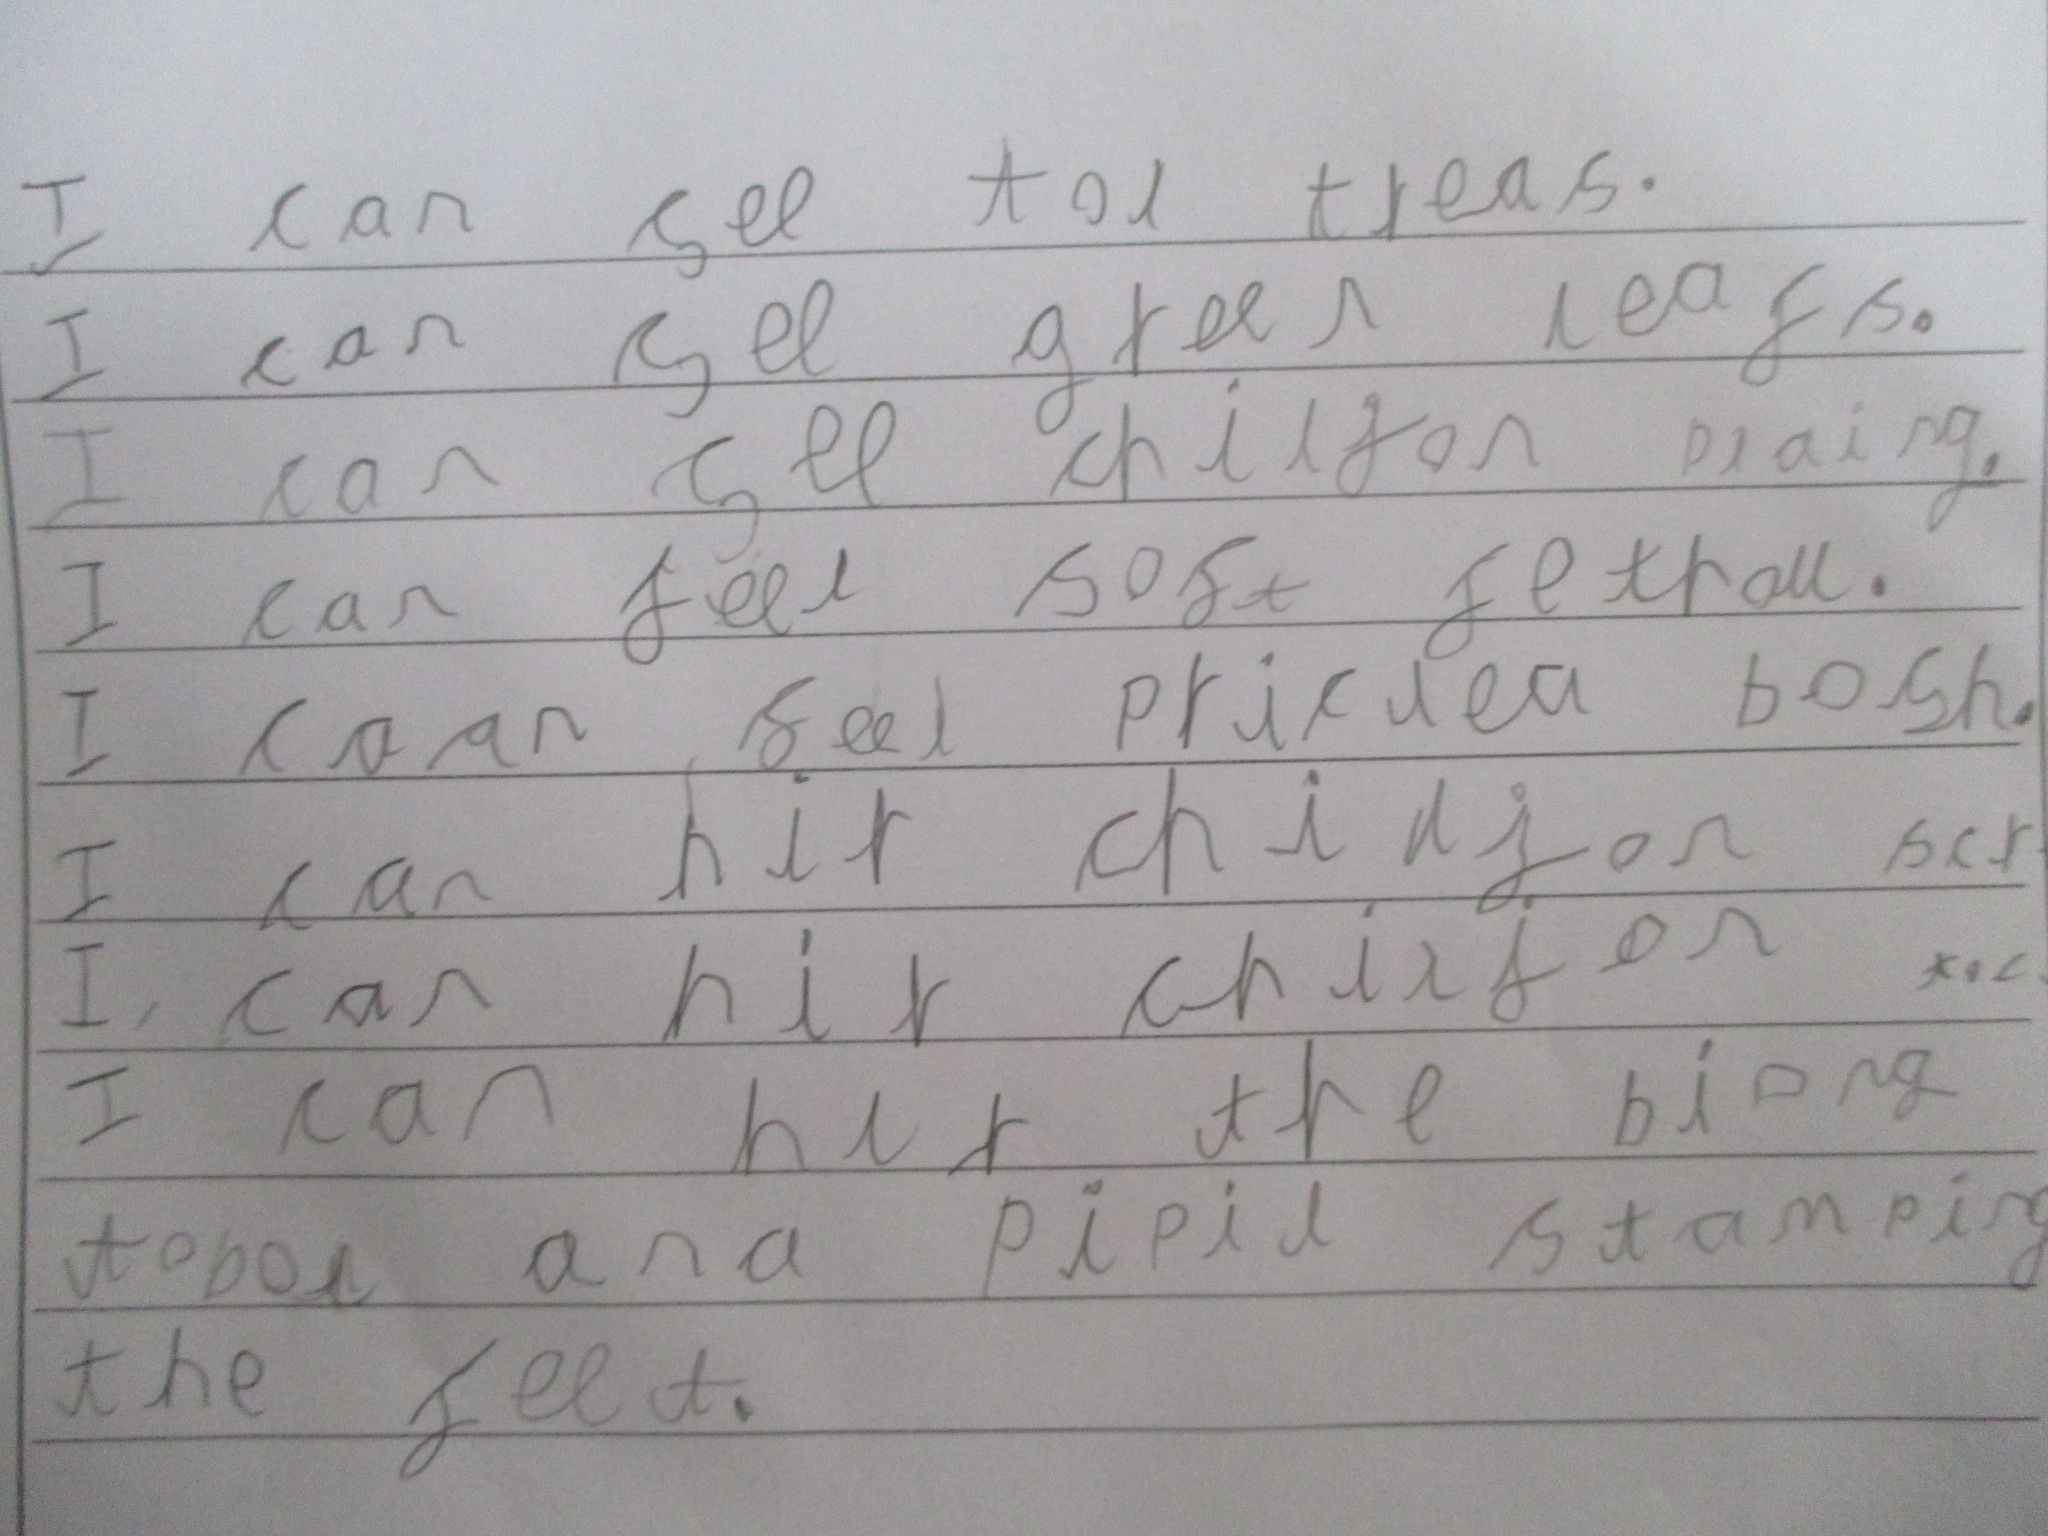 I can see tol treas.
I can see green leafs.
I can see chiljon plaing.
I can feel soft
I caan feel priclea bosh.
I can hir chidjon scr
I can hir chiljon
I can hir the biong
and pipil stamping
the feet.